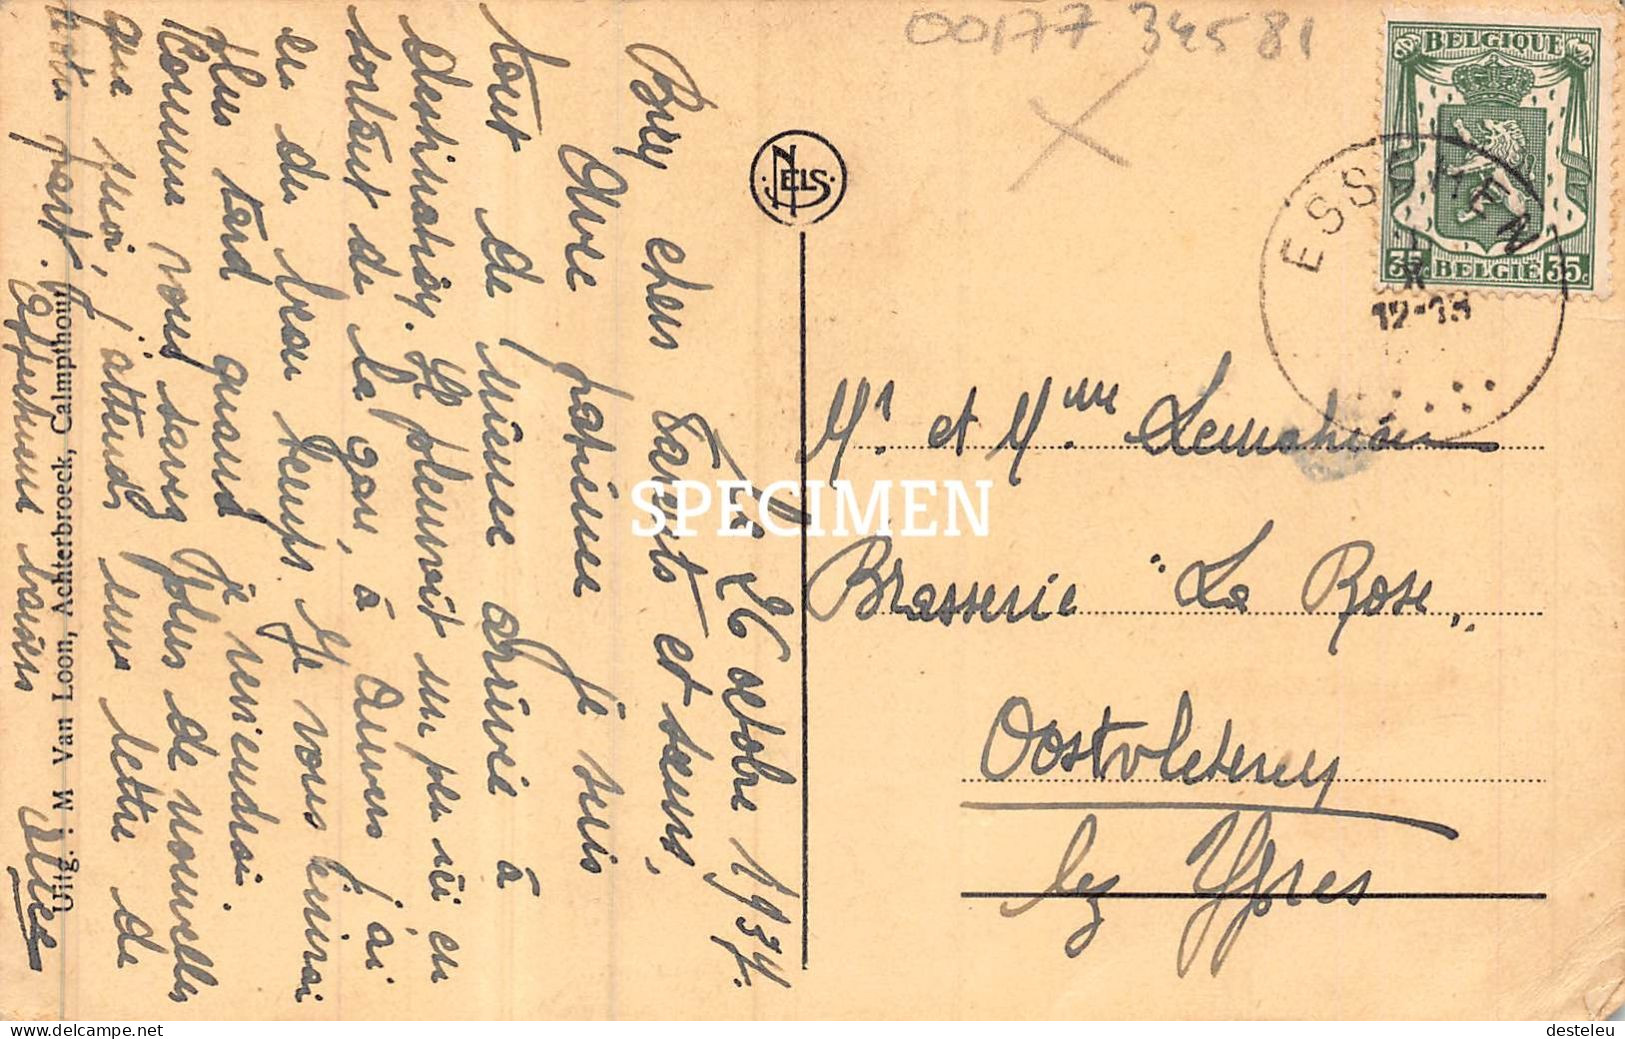 00177 34581
BELGIQUE
35c BELGIË 35c
ESSCHEN
X
12-13
NELS
Le 26 octobre 1937.
Bien chers Parents et sœurs,
Avec patience je suis
tout de même arrivée à
destination. Il pleuvait un peu ici en
sortant de la gare, à Anvers j'ai
eu du beau temps. Je vous
plus tard quand je reviendrai.
Comme vous savez plus de nouvelles
que moi, j'attends une lettre de
votre part. Affectueux baisers
Alice
Uitg. : M Van Loon, Achterbroeck, Calmpthout
Mr et Mme Lemahieu
Brasserie "La Rose"
Oostvleteren
lez Ypres
SPECIMEN
desteleu